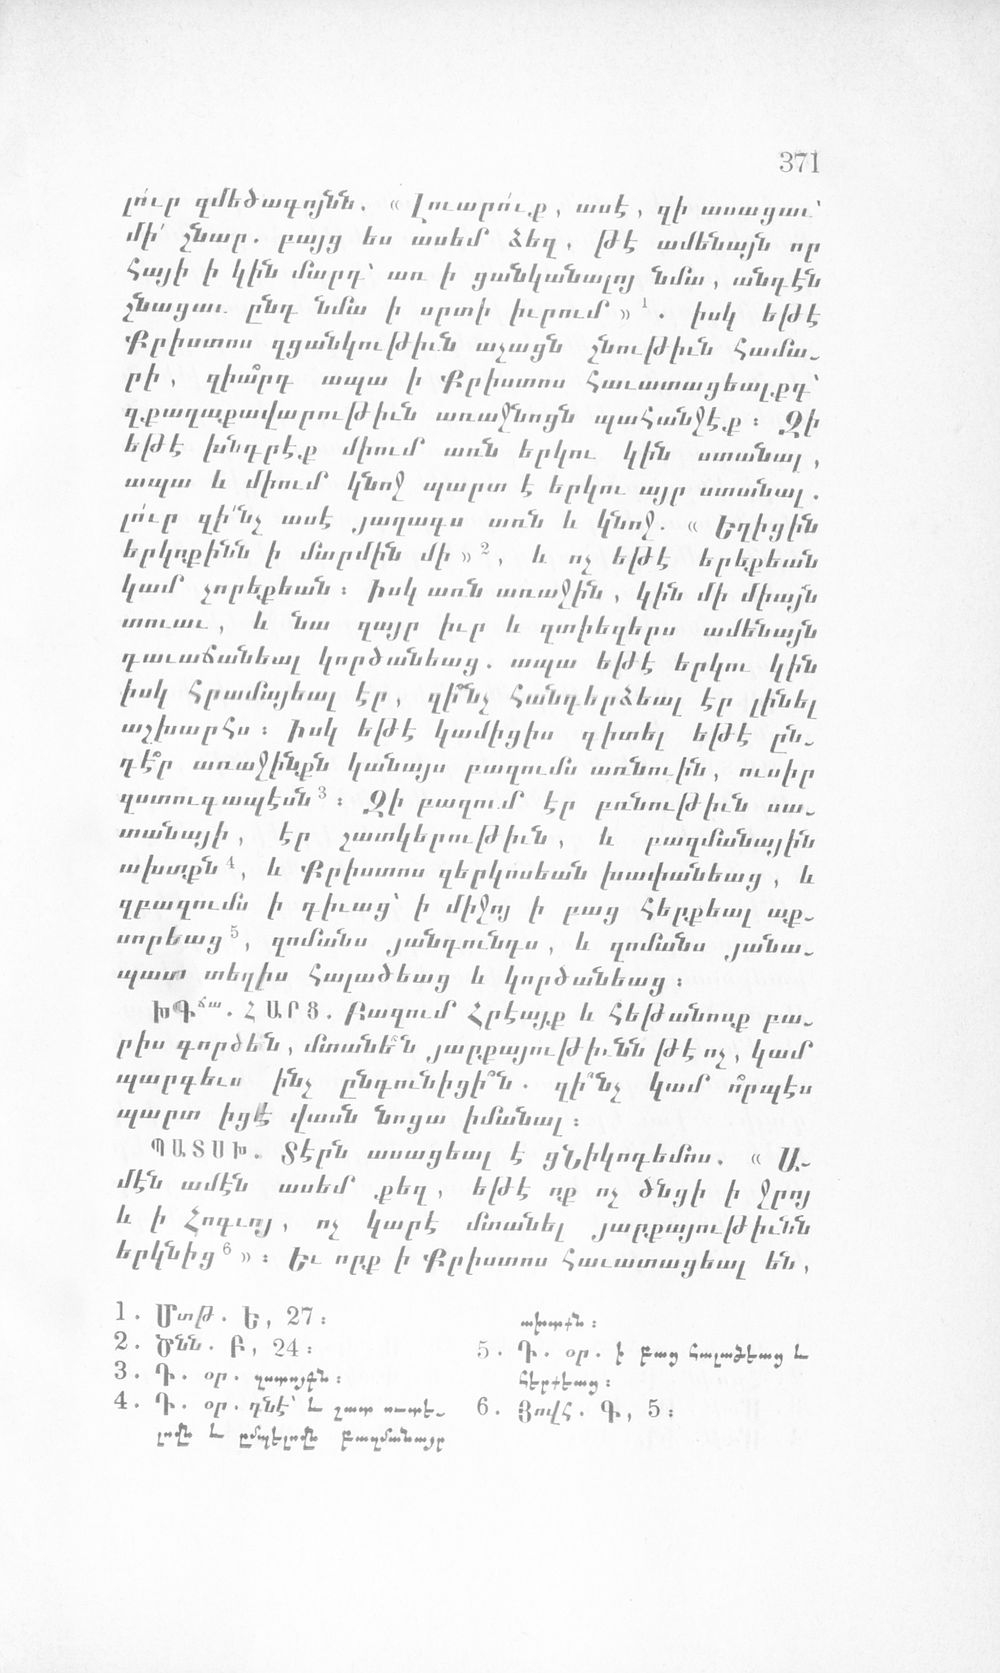 371
լո՛ւր զմեծագոյնն. « Լուարո՛ւք, ասէ, զի ասացաւ՝
մի՛ շնար. բայց ես ասեմ ձեզ, թէ ամենայն որ
հայի ի կին մարդ՝ առ ի ցանկանալոյ նմա, անդէն
շնացաւ ընդ նմա ի սրտի իւրում »¹. իսկ եթէ
Քրիստոս զցանկութիւն աչացն շնութիւն համա-
րի, զիա՞րդ ապա ի Քրիստոս հաւատացեալքդ՝
զքաղաքավարութիւն առաջնոցն պահանջէք։ Զի
եթէ խնդրէք միում առն երկու կին ստանալ,
ապա և միում կնոջ պարտ է երկու այր ստանալ.
լո՛ւր զի՛նչ ասէ յաղագս առն և կնոջ. « Եղիցին
երկոքինն ի մարմին մի »², և ոչ եթէ երեքեան
կամ չորեքեան։ Իսկ առն առաջին, կին մի միայն
տուաւ, և նա զայր իւր և զտիեզերս ամենայն
դաւաճանեալ կործանեաց. ապա եթէ երկու կին
իսկ հրամայեալ էր, զի՞նչ հանդերձեալ էր լինել
աշխարհս։ Իսկ եթէ կամիցիս գիտել եթէ ըն-
դէ՞ր առաջինքն կանայս բազումս առնուին, ուսիր
զստուգապէսն³։ Զի բազում էր բռնութիւն սա-
տանայի, էր շատկերութիւն, և բազմանային
ախտքն⁴, և Քրիստոս զերկոսեան խափանեաց, և
զբազումս ի դիւաց՝ ի միջոյ ի բաց հերքեալ աք-
սորեաց⁵, զոմանս յանդունդս, և զոմանս յանա-
պատ տեղիս հալածեաց և կործանեաց։
ԽԳճա. ՀԱՐՑ. Բազում Հրէայք և հեթանոսք բա-
րիս գործեն, մտանե՞ն յարքայութիւնն թէ ոչ, կամ
պարգեւս ինչ ընդունիցի՞ն. զի՞նչ կամ ո՞րպէս
պարտ իցէ վասն նոցա իմանալ։
ՊԱՏԱԽ. Տէրն ասացեալ է ցՆիկոդեմոս. « Ա-
մէն ամէն ասեմ քեզ, եթէ ոք ոչ ծնցի ի ջրոյ
և ի Հոգւոյ, ոչ կարէ մտանել յարքայութիւնն
երկնից⁶ »։ Եւ որք ի Քրիստոս հաւատացեալ են,
1. Մտթ. Ե, 27։
2. Ծնն. Բ, 24։
3. Դ. օր. զստոյգն։
4. Դ. օր. դնէ՝ և շատ ուտե-
լովն և ըմպելովն բազմանայր
ախտքն։
5. Դ. օր. ի բաց հալածեաց և
հերքեաց։
6. Յովհ. Գ, 5։